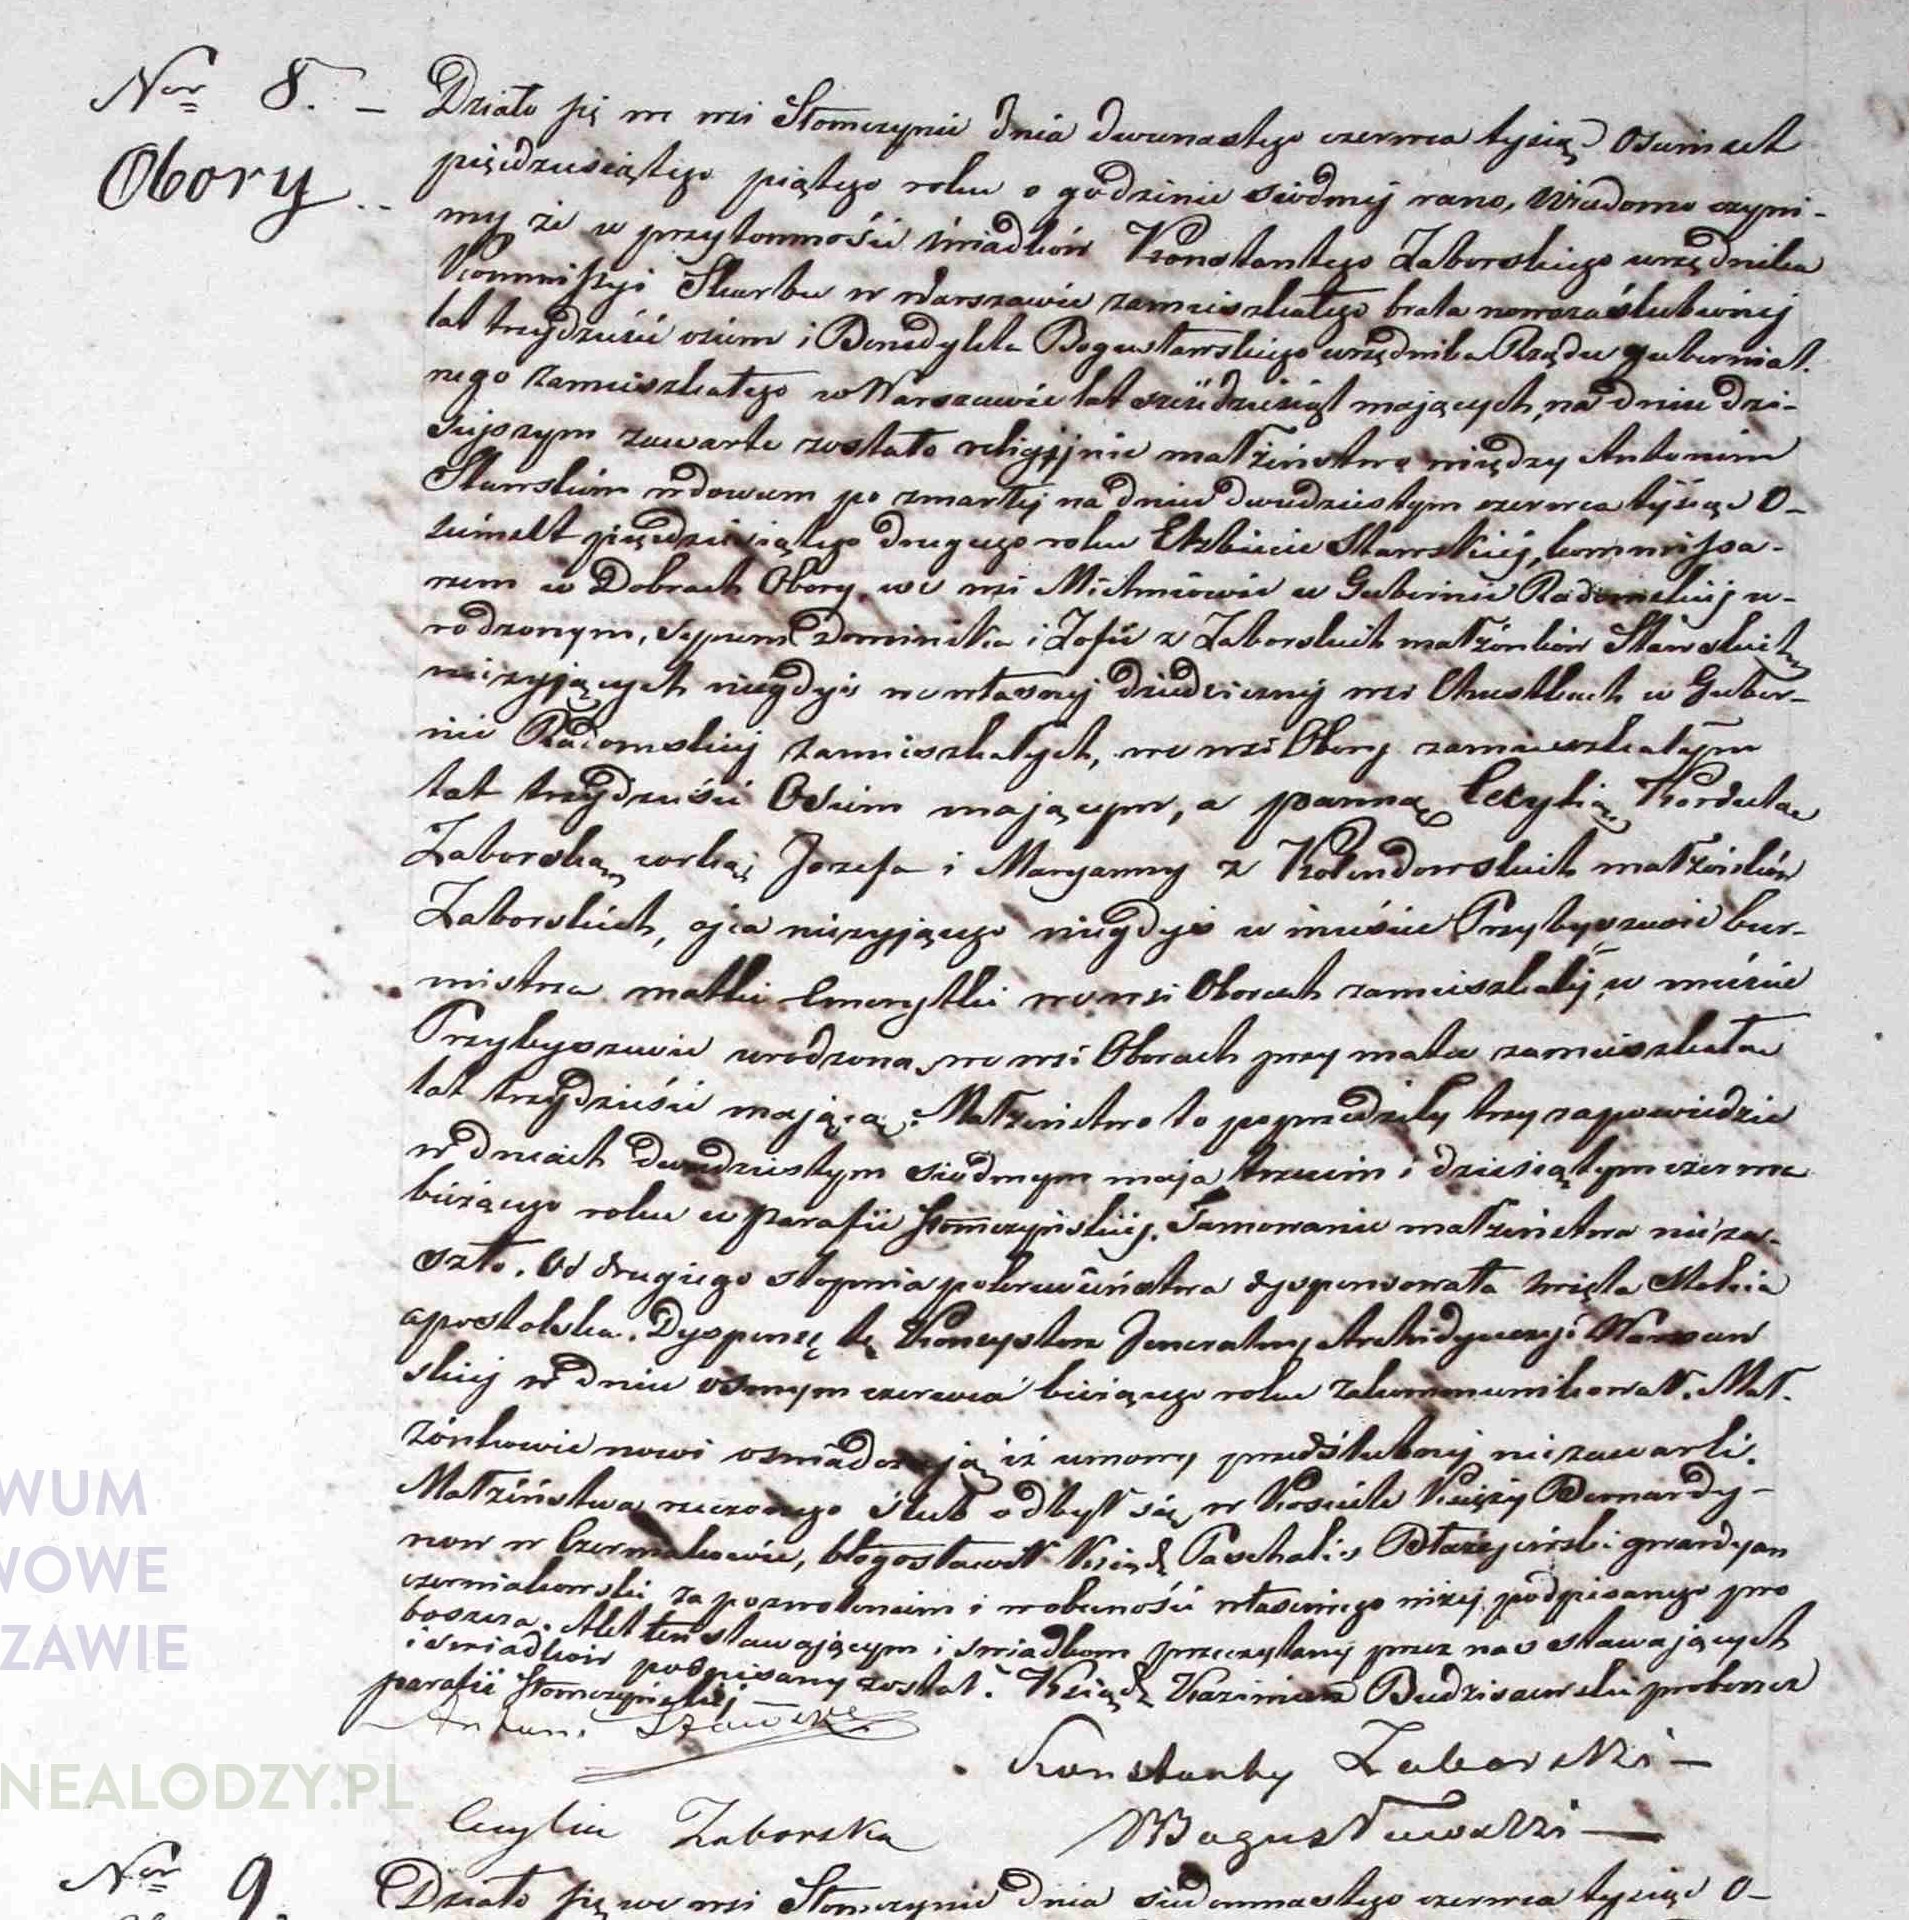 Nr 8. –
Obory
Działo się we wsi Słomczynie dnia dwunastego czerwca tysiąc Osimset
pięcdziesiątego piątego roku o godzinie siodmej rano, Wiadomo czyni-
my że w przytomności świadków Konstantego Zaborskiego urzędnika
Kommissyi Skarbu w Warszawie zamieszkałego brata nowozaślubionej
lat trzydzieści osim i Benedykta Bogusławskiego urzędnika Rządu gubernial.
nego zamieszkałego w Warszawie lat sześdziesiąt mających, na dniu dzi-
siejszym zawarte zostało religijnie małżeństwo między Antonim
Sławskim wdowcem po zmarłej na dniu dwudziestym czerwca tysiąc O-
simset pięcdziesiątego drugiego roku Elżbiecie Sławskiej, kommissa-
rzem w Dobrach Obory, we wsi w Gubernii Radomskiej u-
rodzonym, synem Dominika i Zofii z Zaborskich małżonków Sławskich
nieżyjących niegdyś we własnej dziedzicznej wsi Chustkach w Guber-
nii Radomskiej zamieszkałych, we wsi Obory zamieszkałym
lat trzydzieści Osim mającym, a panną Cecylią Kordulą
Zaborską córką Jozefa i Maryanny z Kolendowskich małżonków
Zaborskich, ojca nieżyjącego niegdyś w mieście Przybyszewie bur-
mistrza matki Emerytki we wsi Oborach zamieszkałej, w mieście
Przybyszewie urodzona, we wsi Oborach przy matce zamieszkała
lat trzydzieści mającą. Małżeństwo to poprzedziły trzy zapowiedzie
w dniach dwudziestym siodmym maja trzecim i dziesiątym czerwca
bieżącego roku w parafii Słomczyńskiej. Tamowanie małżeństwa nieza-
szło. Od drugiego stopnia pokrewieństwa dyspensowała święta Stolica
apostolska. Dyspensę tę Konsystorz Jeneralny Archidyecezyi Warszaw
skiej w dniu osmym czerwca bieżącego roku zakommunikował. Mał-
żonkowie nowi oświadczają iż umowy przedślubnej niezawarli.
Małżeństwa rzeczonego ślub odbył się w Kosciele Księży Bernardy-
now w Czerniakowie, błogosławił Ksiądz Paschalis Błażejewski gwardyan
czerniakowski za pozwoleniem i w obecności własciwego niżej podpisanego pro
boszcza. Akt ten stawającym i swiadkom przeczytany przez nas stawających
i swiadków podpisany został. Ksiądz Kazimierz Budziszewski proboszcz
parafii Słomczyńskiej –
Antoni Sławski
Konstanty Zaborski –
Cecylia Zaborska
B Bogusławski –
Nr 9.
Działo się we wsi Słomczynie dnia siedemnastego czerwca tysiąc O-
WUM
WOWE
ZAWIE
NEALODZY.PL